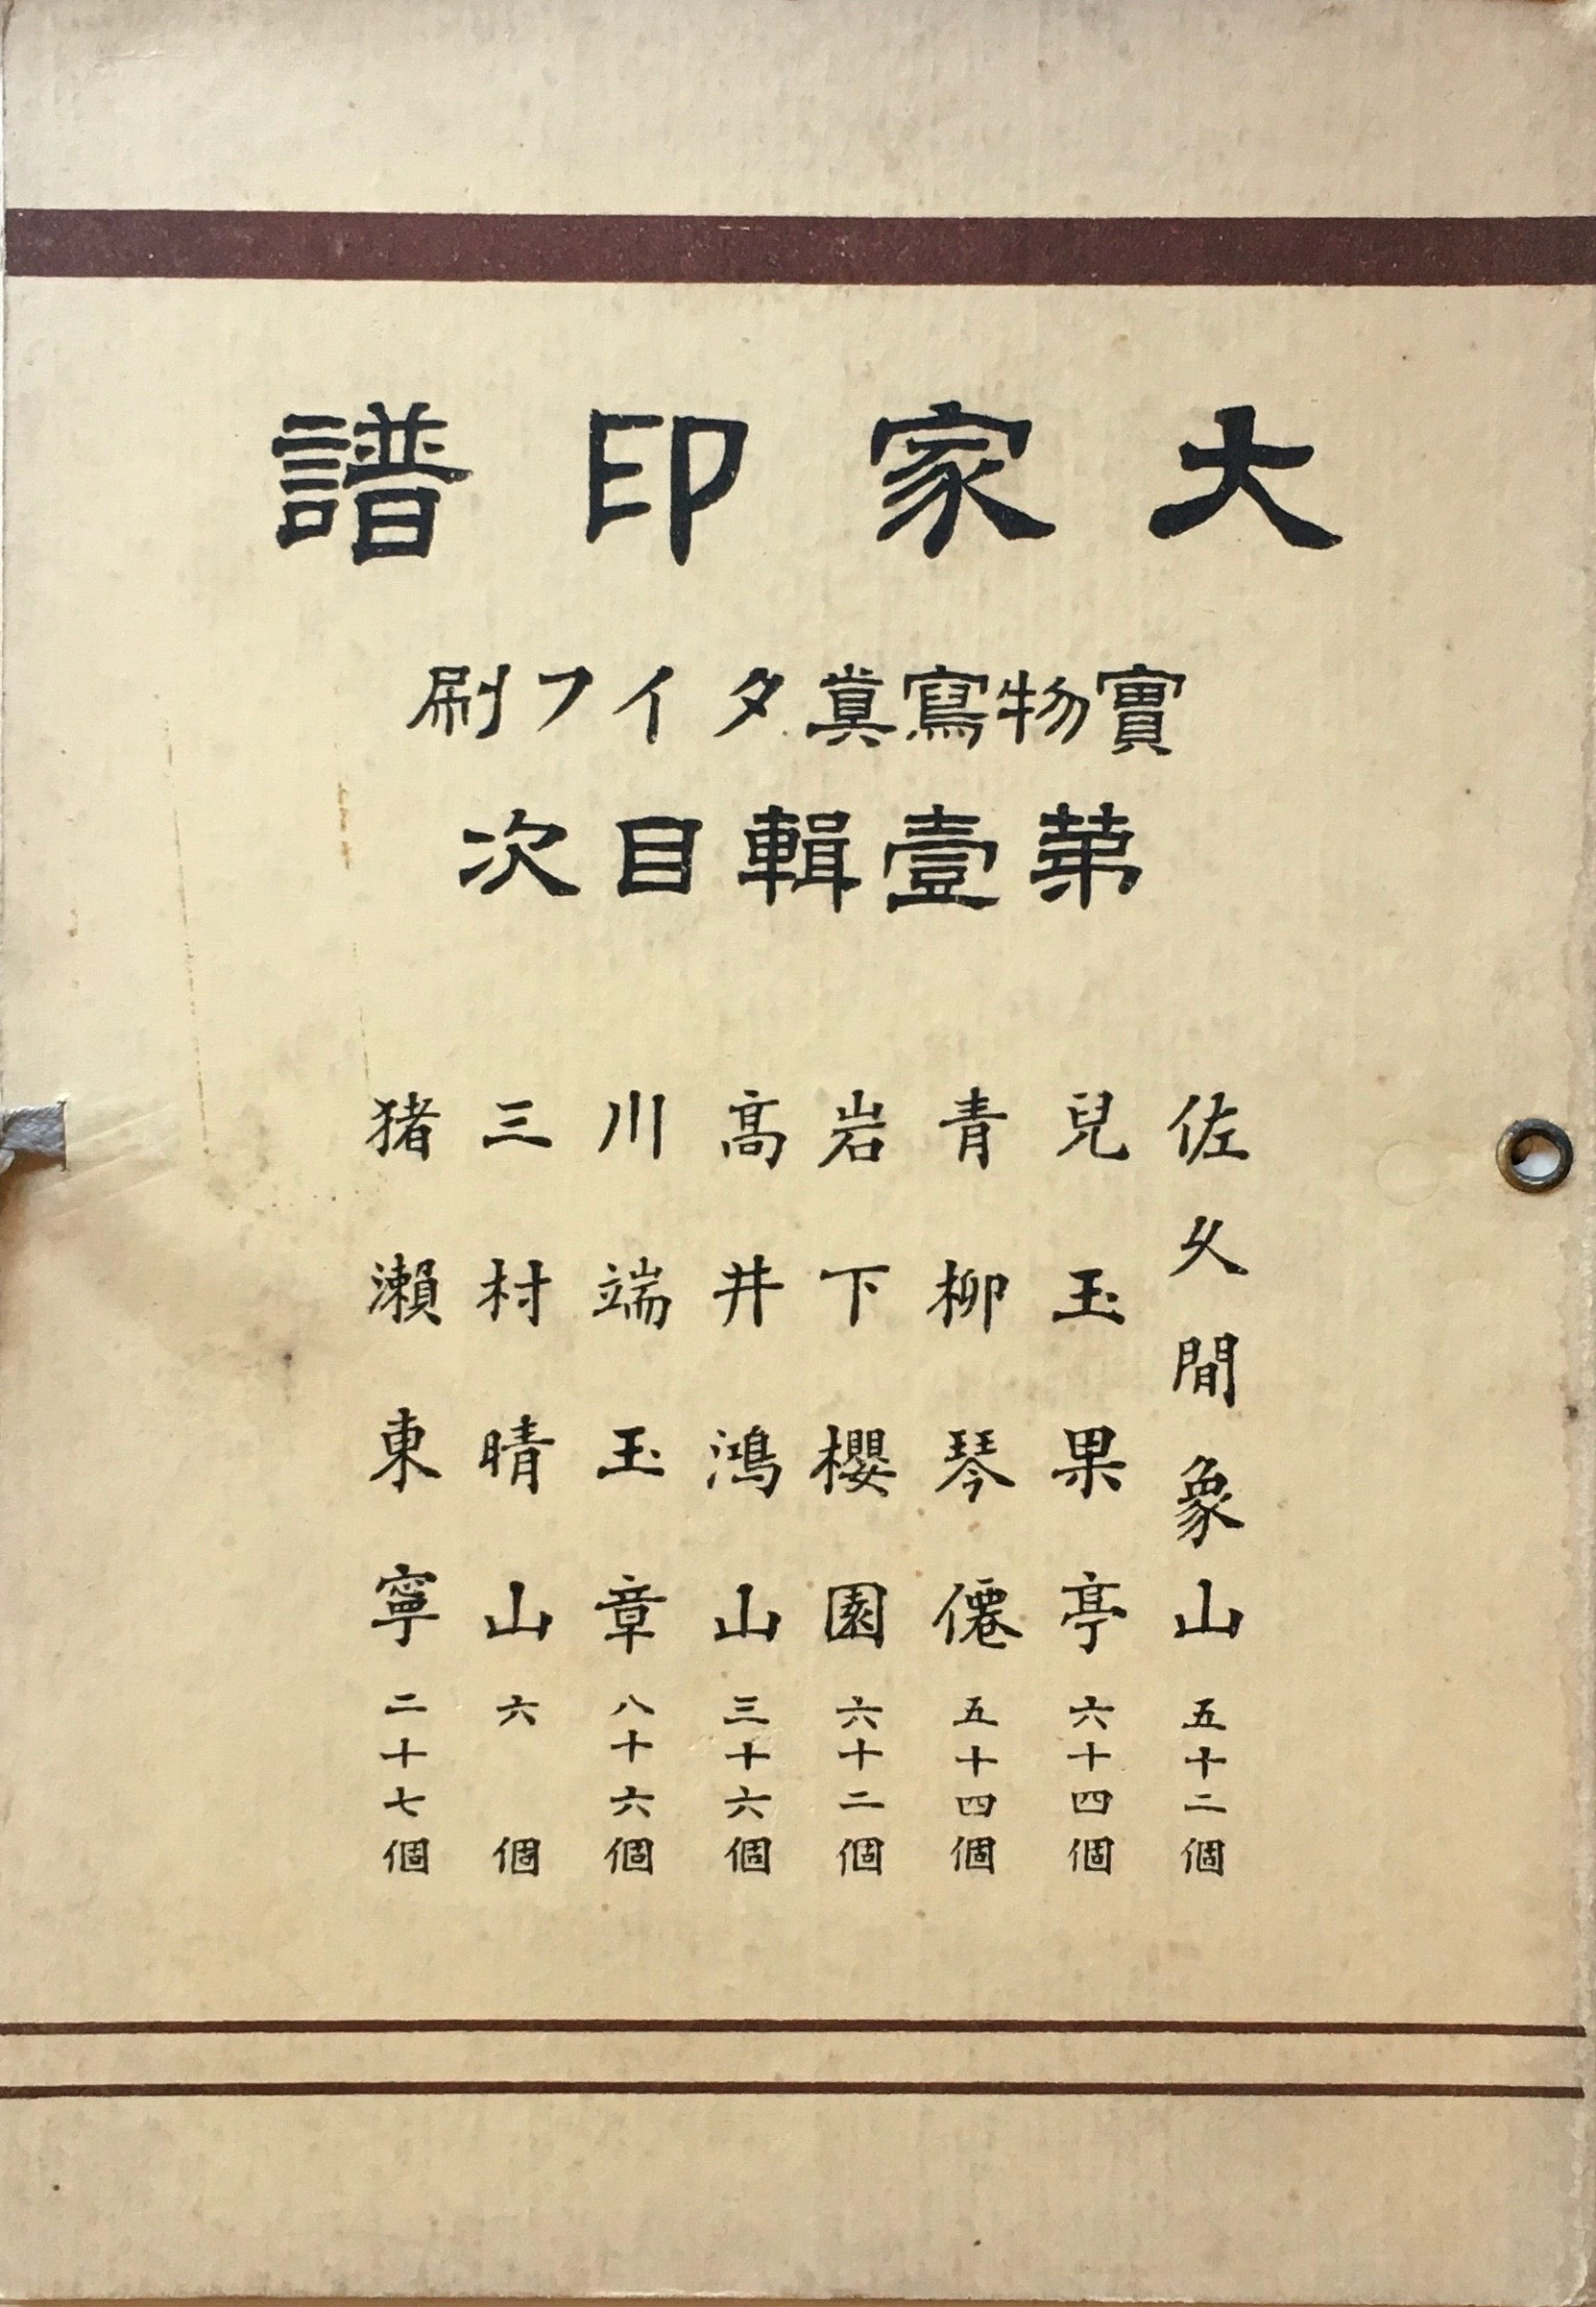 大家印譜
實物寫眞タイフ刷
第壹輯目次
佐久間象山 五十二個
兒玉果亭 六十四個
青柳琴僊 五十四個
岩下櫻園 六十二個
高井鴻山 三十六個
川端玉章 八十六個
三村晴山 六個
猪瀬東寧 二十七個